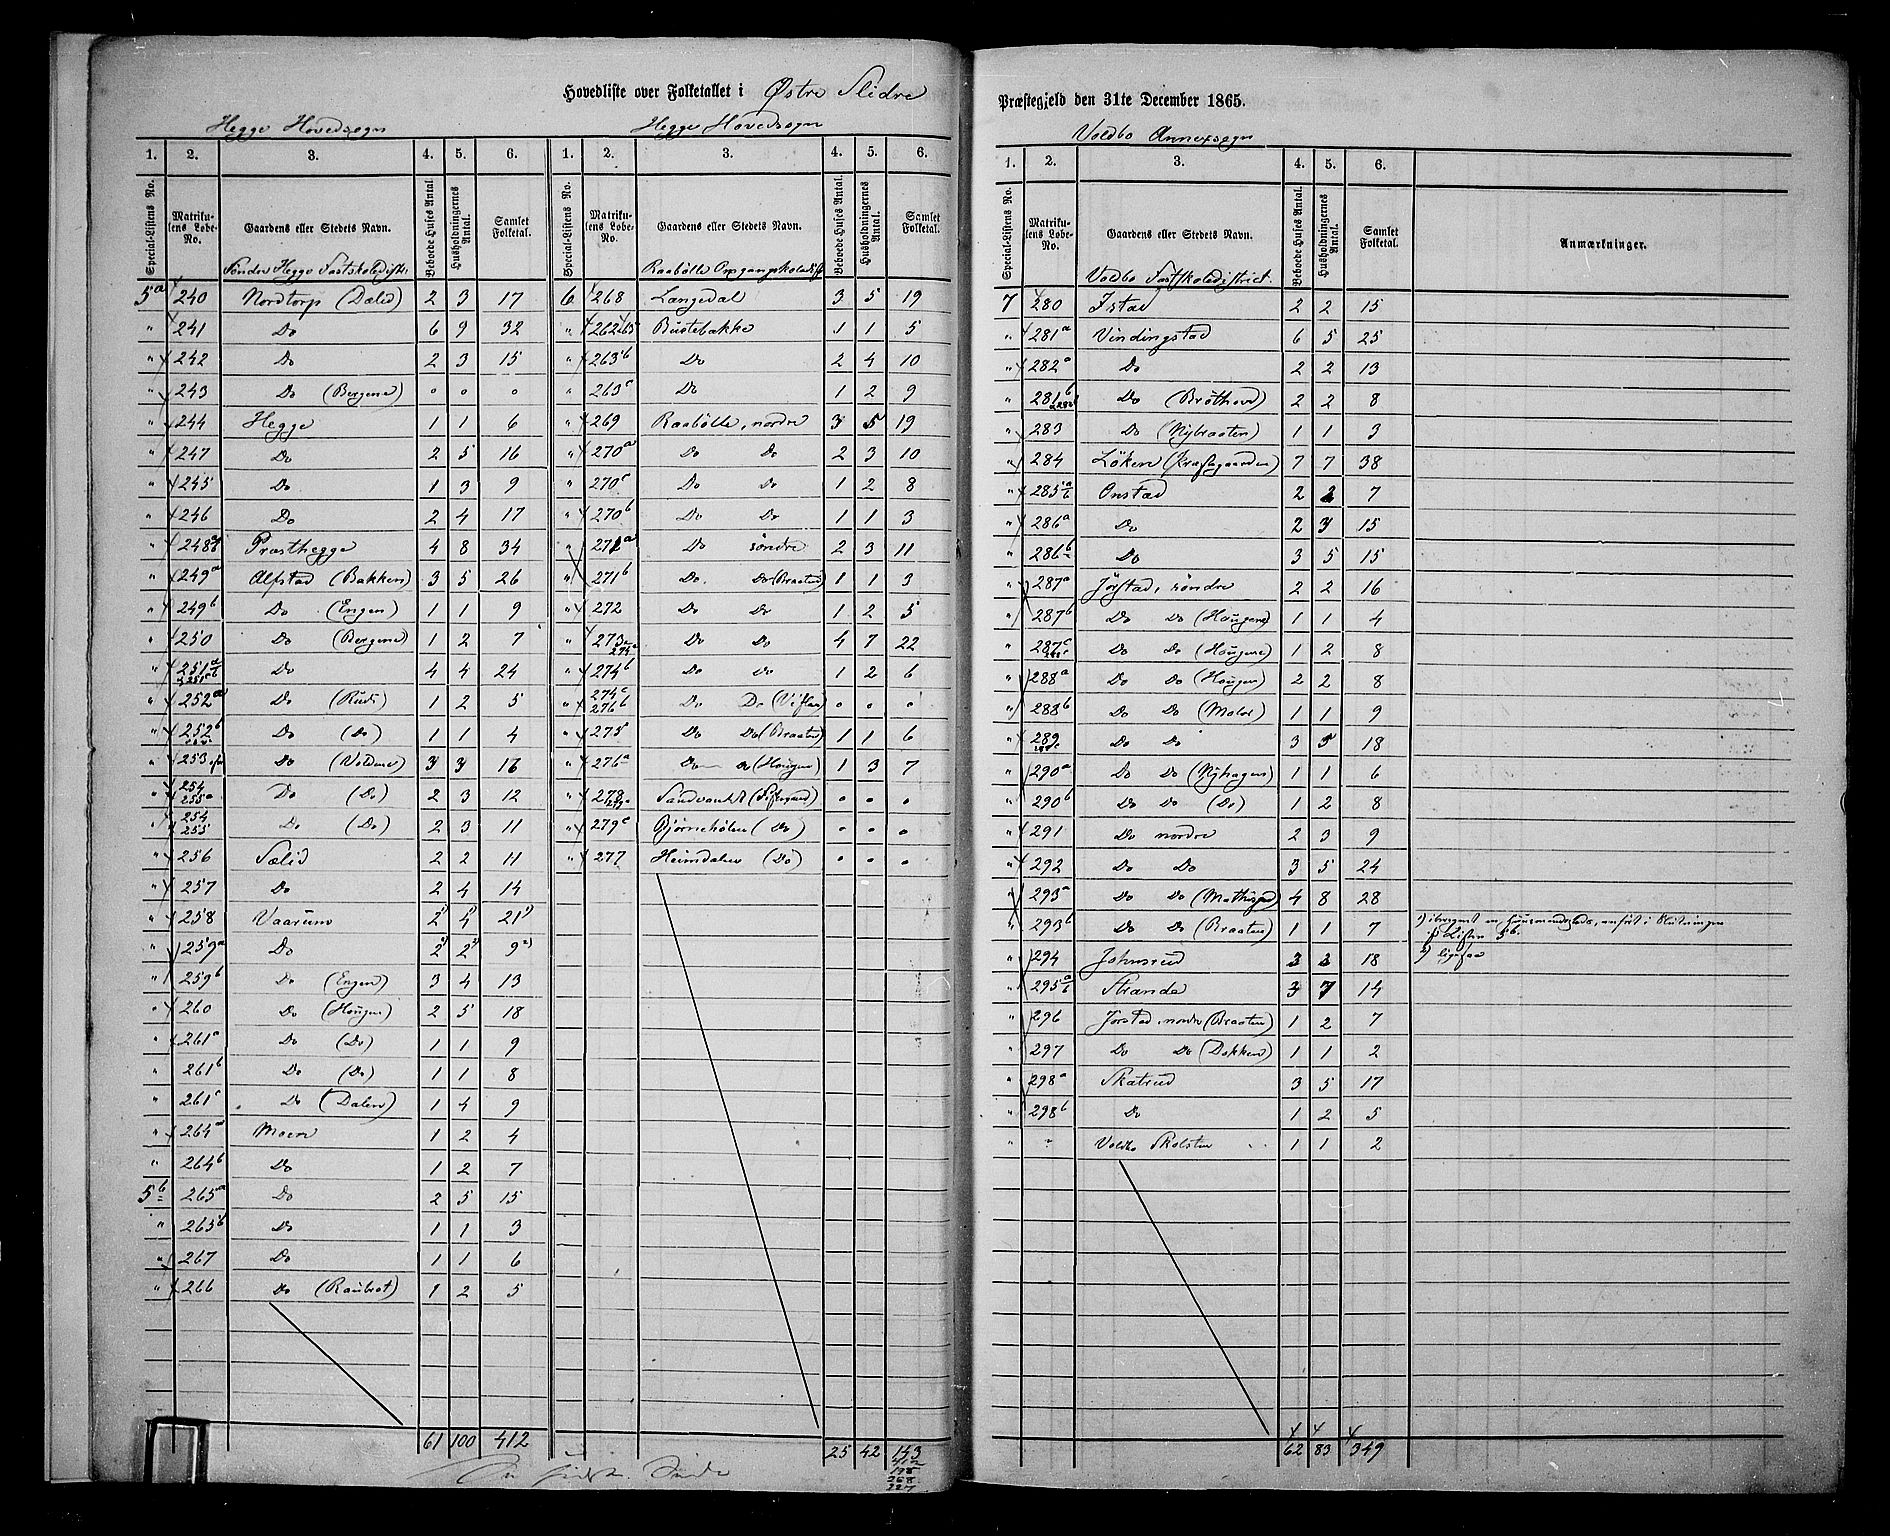 Hovedliste over Folketallet i Østre Slidre
Hegge Hovedsogn Hegge Hovedsogn
1. 2. 3. 4. 5. 6. 1. 2. 3. 4. 5. 6.
Special-Listens No. Matrikulens Løbe-No. Gaardens eller Stedets Navn. Beboede Huses Antal. Husholdningernes Antal. Samlet Folketal. Special-Listens No. Matrikulens Løbe-No. Gaardens eller Stedets Navn. Beboede Huses Antal. Husholdningernes Antal. Samlet Folketal.
Søndre Hegge Fastskoledistr.
5a 240 Nordtorp (Daled) 2 3 17
" 241 Do 6 9 32
" 242 Do 2 3 15
" 243 Do (Bergene) " " "
" 244 Hegge 1 1 6
" 247 Do 2 5 16
" 245 Do 1 3 9
" 246 Do 2 4 17
" 248a Præsthegge 4 8 34
" 249a Alfstad (Bakken) 3 5 26
" 249b Do (Engen) 1 1 9
" 250 Do (Bergene) 1 2 7
" 251a Do 4 4 24
" 252a Do (Rude) 1 2 5
" 252b Do (Do) 1 1 4
" 253 Do (Voldene) 3 3 16
" 254 255a Do (Do) 2 3 12
" 254 255 Do (Do) 2 3 11
" 256 Sælid 2 2 11
" 257 Do 2 4 14
" 258 Vaarum 2 4 21 1)
" 259a Do 2 2 9 2)
" 259b Do (Engen) 3 4 13
" 260 Do (Hougen) 2 5 18
" 261a Do (Do) 1 1 9
" 261b Do (Do) 1 1 8
" 261c Do (Dalen) 1 4 9
" 264a Moen 1 2 4
" 264b Do 1 2 7
5b 265a Do 2 5 15
" 265b Do 1 1 3
" 267 Do 1 1 6
" 266 Do (Raubrot) 1 2 5
61 100 412
Raabølle Omgangsskoledist
6 268 Langedal 3 5 19
" 262 Bustebakke 1 1 5
" 263b Do 2 4 10
" 263c Do 1 2 9
" 269 Raabølle, nordre 3 5 19
" 270a Do Do 2 3 10
" 270c Do Do 1 2 8
" 270b Do Do 1 1 3
" 271a Do søndre 2 3 11
" 271b Do Do (Braaten) 1 1 3
" 272 Do Do 1 2 5
" 273 274a Do Do 4 7 22
" 274b Do Do 1 2 6
" 274c 276b Do Do " " "
" 275 Do Do (Braaten) 1 1 6
" 276a Do Do (Hougen) 1 3 7
" 278 " " "
" 279c Bjørnehølen (Do) " " "
" 277 Heimdalen (Do) " " "
25 42 143
412
198
268
227
Præstegjeld den 31te December 1865.
Voldbo Annexsogn
1. 2. 3. 4. 5. 6.
Special-Listens No. Matrikulens Løbe-No. Gaardens eller Stedets Navn. Beboede Huses Antal. Husholdningernes Antal. Samlet Folketal. Anmærkninger.
Voldbo Fastskoledistrict.
7 280 Istad 2 2 15
" 281a Vindingstad 6 5 25
" 282a Do 2 2 13
" 281b 282b Do (Bröthovd) 2 2 8
" 283 Do (Nybraaten) 1 1 3
" 284 Løken (Præstegaarden) 7 7 38
" 285a/b Onstad 2 2 7
" 286a Do 2 3 15
" 286b Do 3 5 15
" 287a Jørstad, søndre 2 2 16
" 287b Do Do (Hougene) 1 1 4
" 287c Do Do (Hougene) 1 2 8
" 288a Do Do (Hougen) 2 2 8
" 288b Do Do (Moloe) 1 1 9
" 289 Do Do 3 5 18
" 290a Do Do (Nyhagen) 1 1 6
" 290b Do Do (Do) 1 2 8
" 291 Do nordre 2 3 9
" 292 Do Do 3 5 24
" 293a Do Do 4 8 28
" 293b Do Do (Braaten) 1 1 7
" 294 Johnsrud 3 2 18
" 295a/b Strande 3 7 14
" 296 Jørstad, nordre (Braaten) 1 2 7
" 297 Do Do (Dokken) 1 1 2
" 298a Skatrud 3 5 17
" 298b Do 1 2 5
" " Voldbo Skolstue 1 1 2
62 83 349
1) iberegnet en Huusmandsplads, anført i Slutningen
af Listen 5b.
2) ligesaa